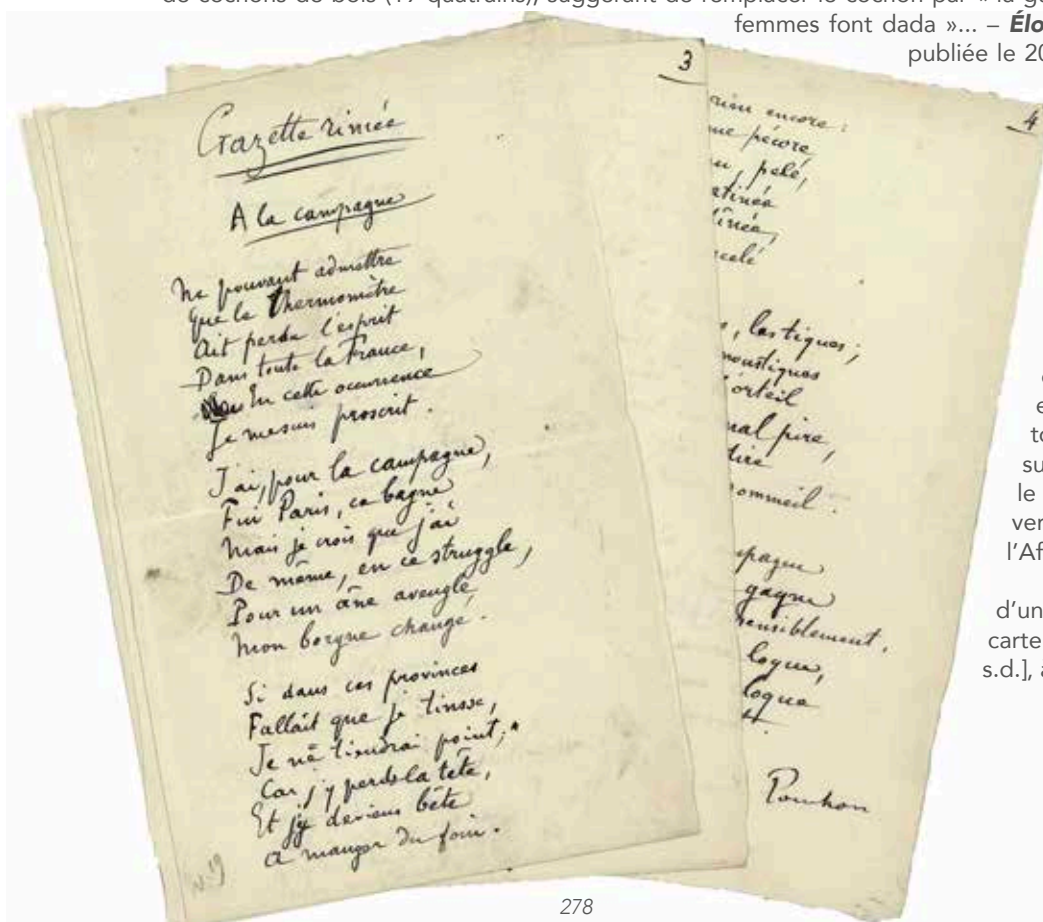 de cochons de bois (17 quatrains), suggérant de remplacer le cochon par « la g
femmes font dada »... – Élo
publiée le 20
3
Gazette rimée
A la campagne
Ne pouvant admettre
Que le Thermomètre
Ait perdu l'esprit
Dans toute la France,
En cette occurrence
Je me suis proscrit.
J'ai, pour la campagne,
Fui Paris, ce bagne
Mais je crois que j'ai
De même, en ce struggle,
Pour un âne aveugle,
Mon borgne changé.
Si dans ces provinces
Fallait que je tinsse,
Je ne tiendrai point;
Car j'y perds la tête,
Et j'y deviens bête
A manger du foin.
4
encore :
pécore
pelé,
celé
lastiques;
moustiques
orteil
mal pire,
tire
sommeil.
pagne
gagne
sensiblement.
logue,
logue
t.
Ponchon
e
to
su
le
ver
l'Af
d'un
carte
s.d.], a
278